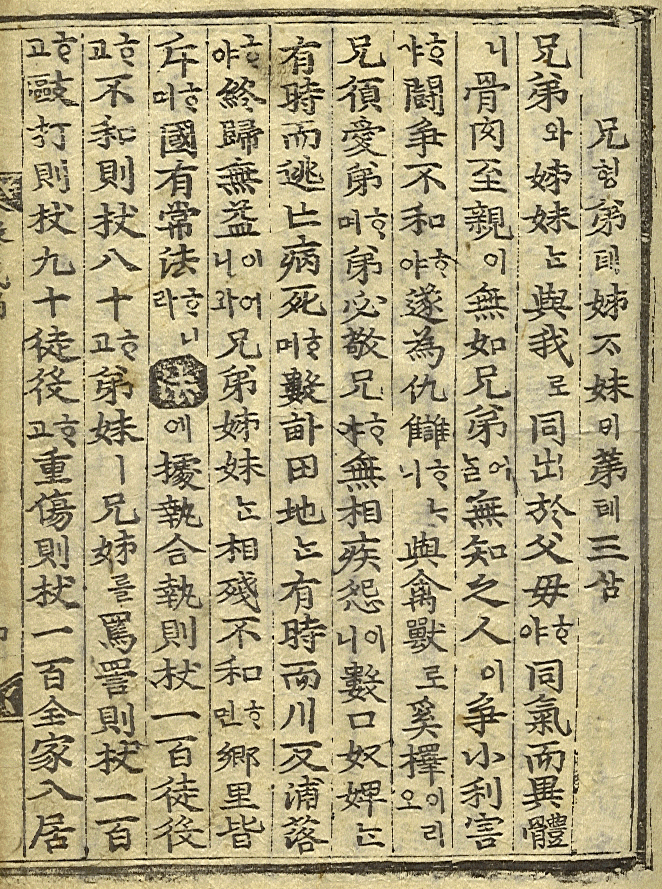 兄형弟뎨姊ᄌᆞ妹ᄆᆡ第뎨三삼
兄弟와姊妹ᄂᆞᆫ與我로同出於父母ᄒᆞ야同氣而異體
니骨肉至親이無如兄弟어ᄂᆞᆯ無知之人이爭小利害
ᄒᆞ야鬪爭不和ᄒᆞ야遂為仇讎ᄒᆞᄂᆞ니與禽獸로奚擇이리오
兄須愛弟ᄒᆞ며弟必敬兄ᄒᆞ야無相疾怨이니數口奴婢ᄂᆞᆫ
有時而逃亡病死ᄒᆞ며數畝田地ᄂᆞᆫ有時而川反浦落
ᄒᆞ야終歸無益이어니와兄弟姊妹ᄂᆞᆫ相殘不和ᄒᆞ면鄉里皆
斥ᄒᆞ며國有常法ᄒᆞ니라에據執合執則杖一百徒役
ᄒᆞ고不和則杖八十ᄒᆞ고弟妹ㅣ兄姊를罵詈則杖一百
ᄒᆞ고毆打則杖九十徒役ᄒᆞ고重傷則杖一百全家入居